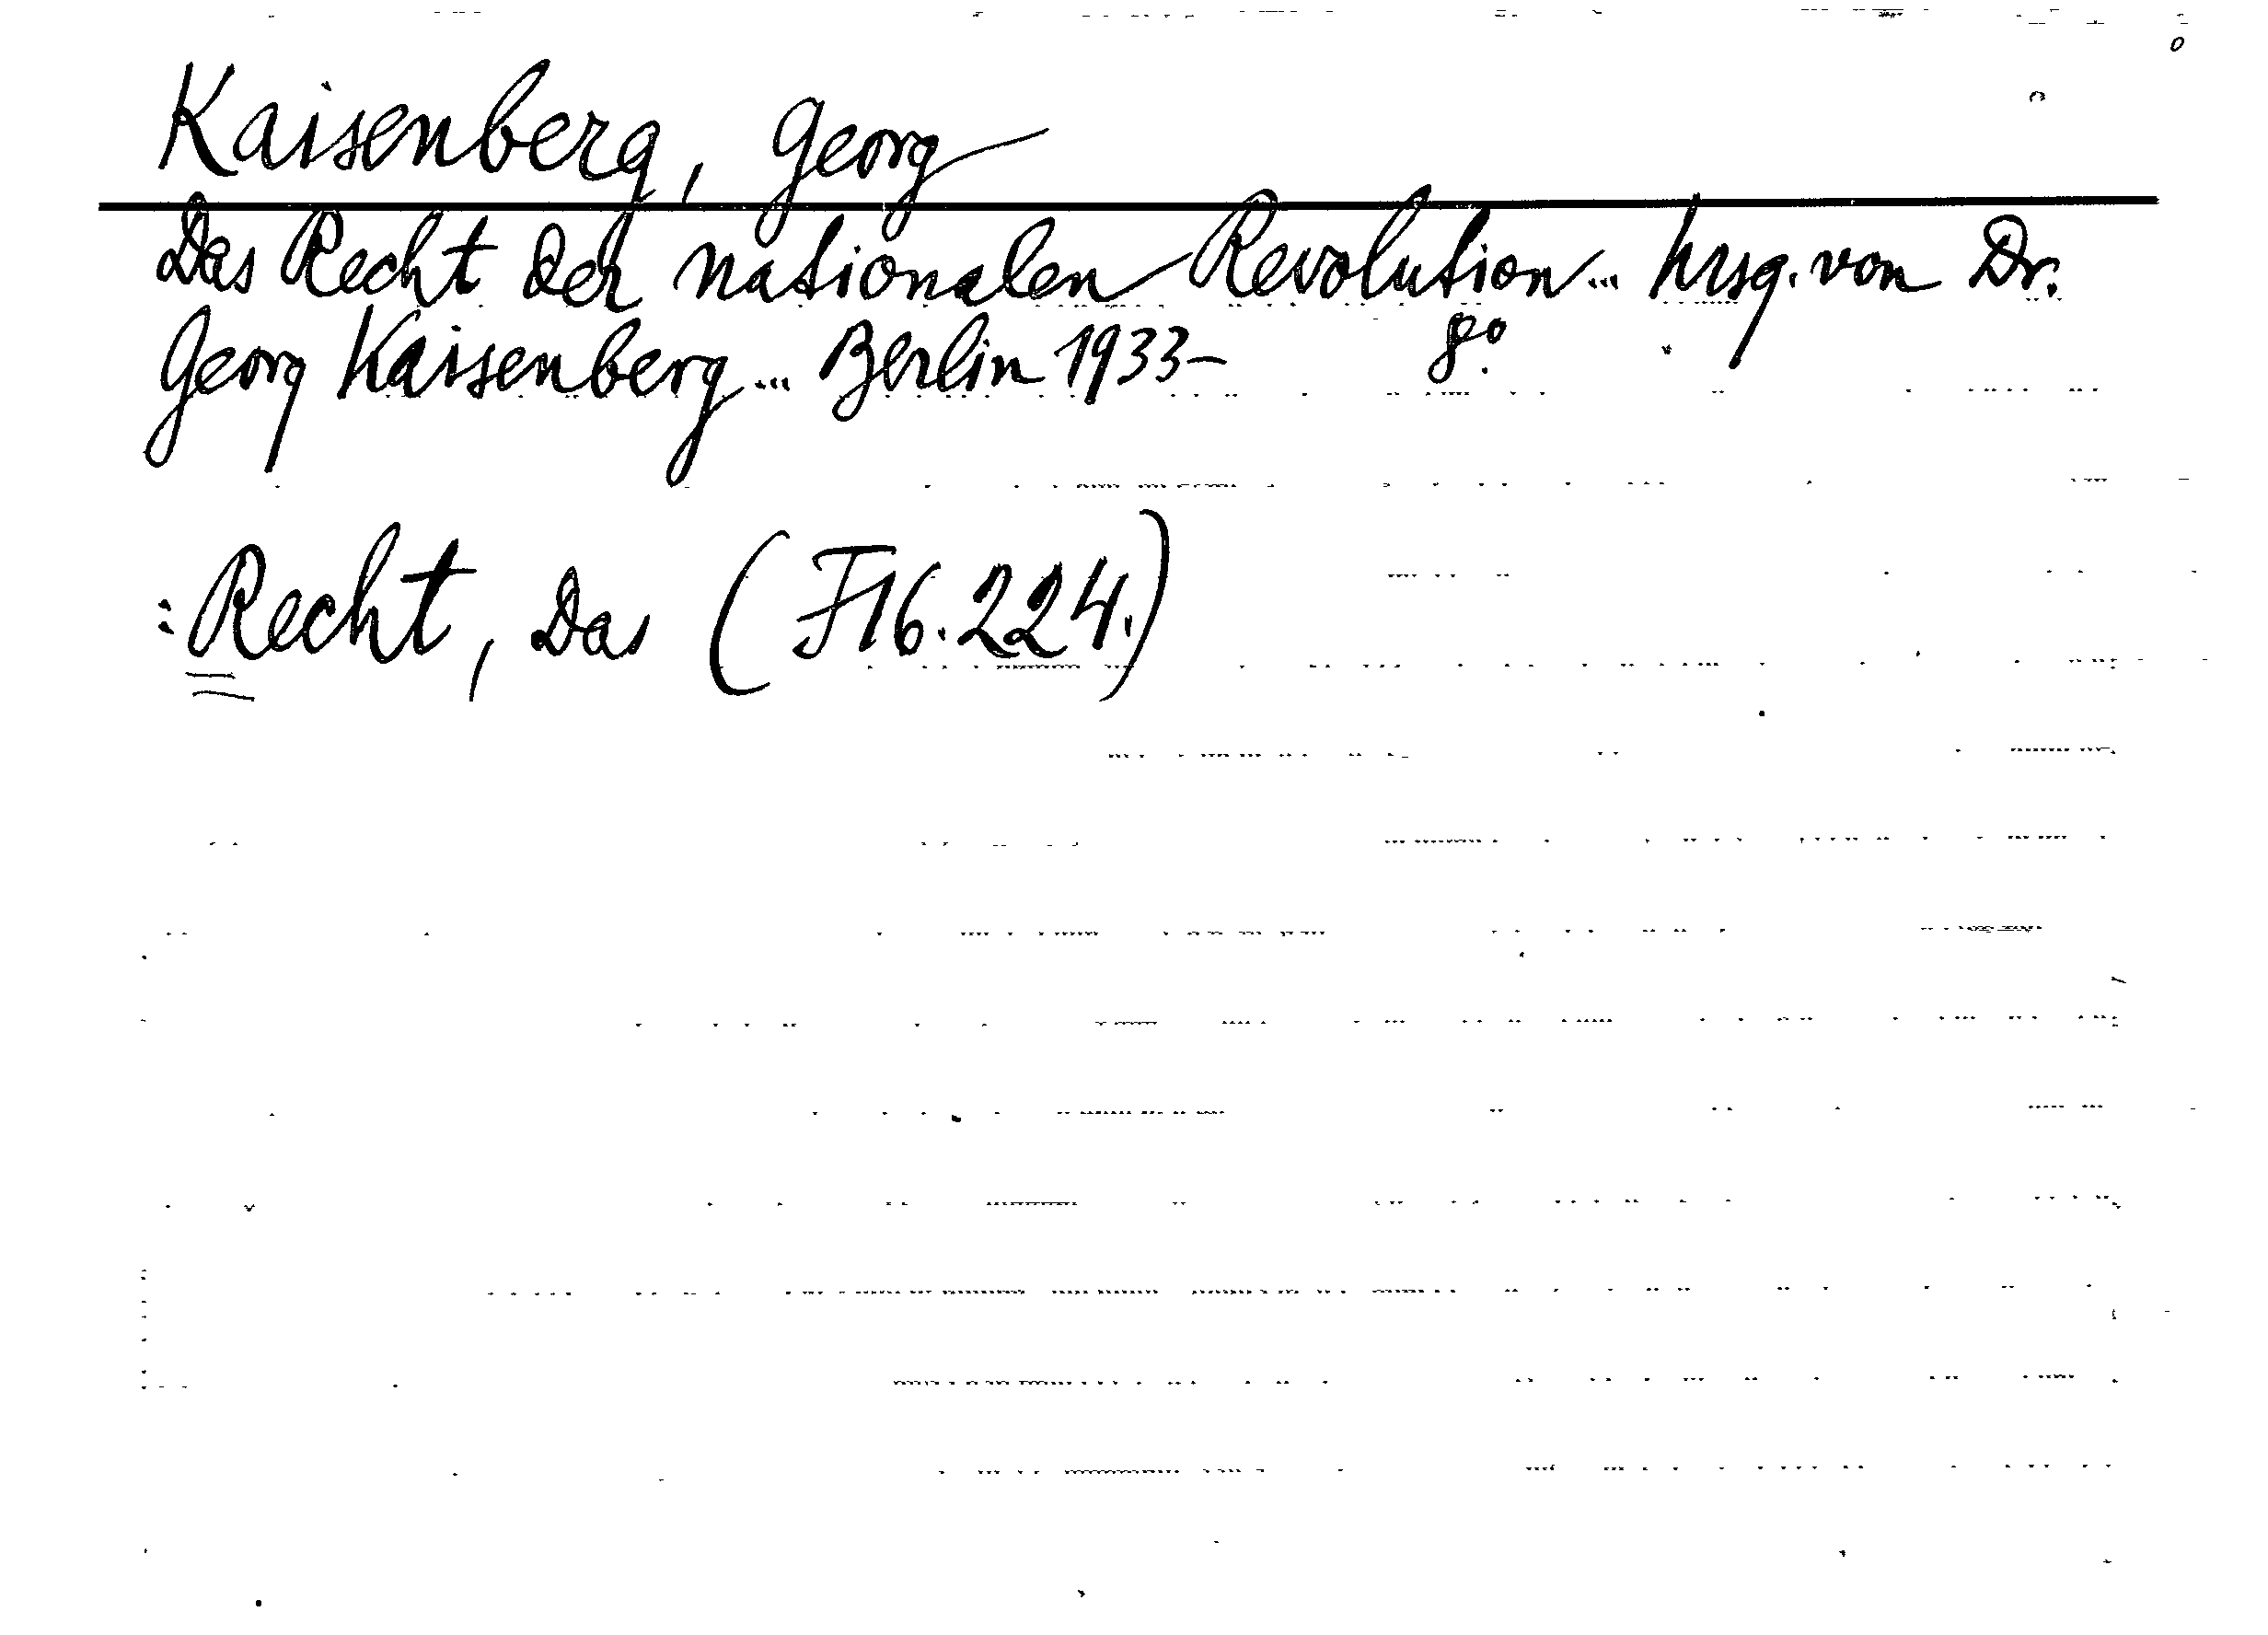 Kaisenberg, Georg
Das Recht der nationalen Revolution... hrsg. von Dr.
Georg Kaisenberg... Berlin 1933- 8°.
: Recht, Das (F16.224.)